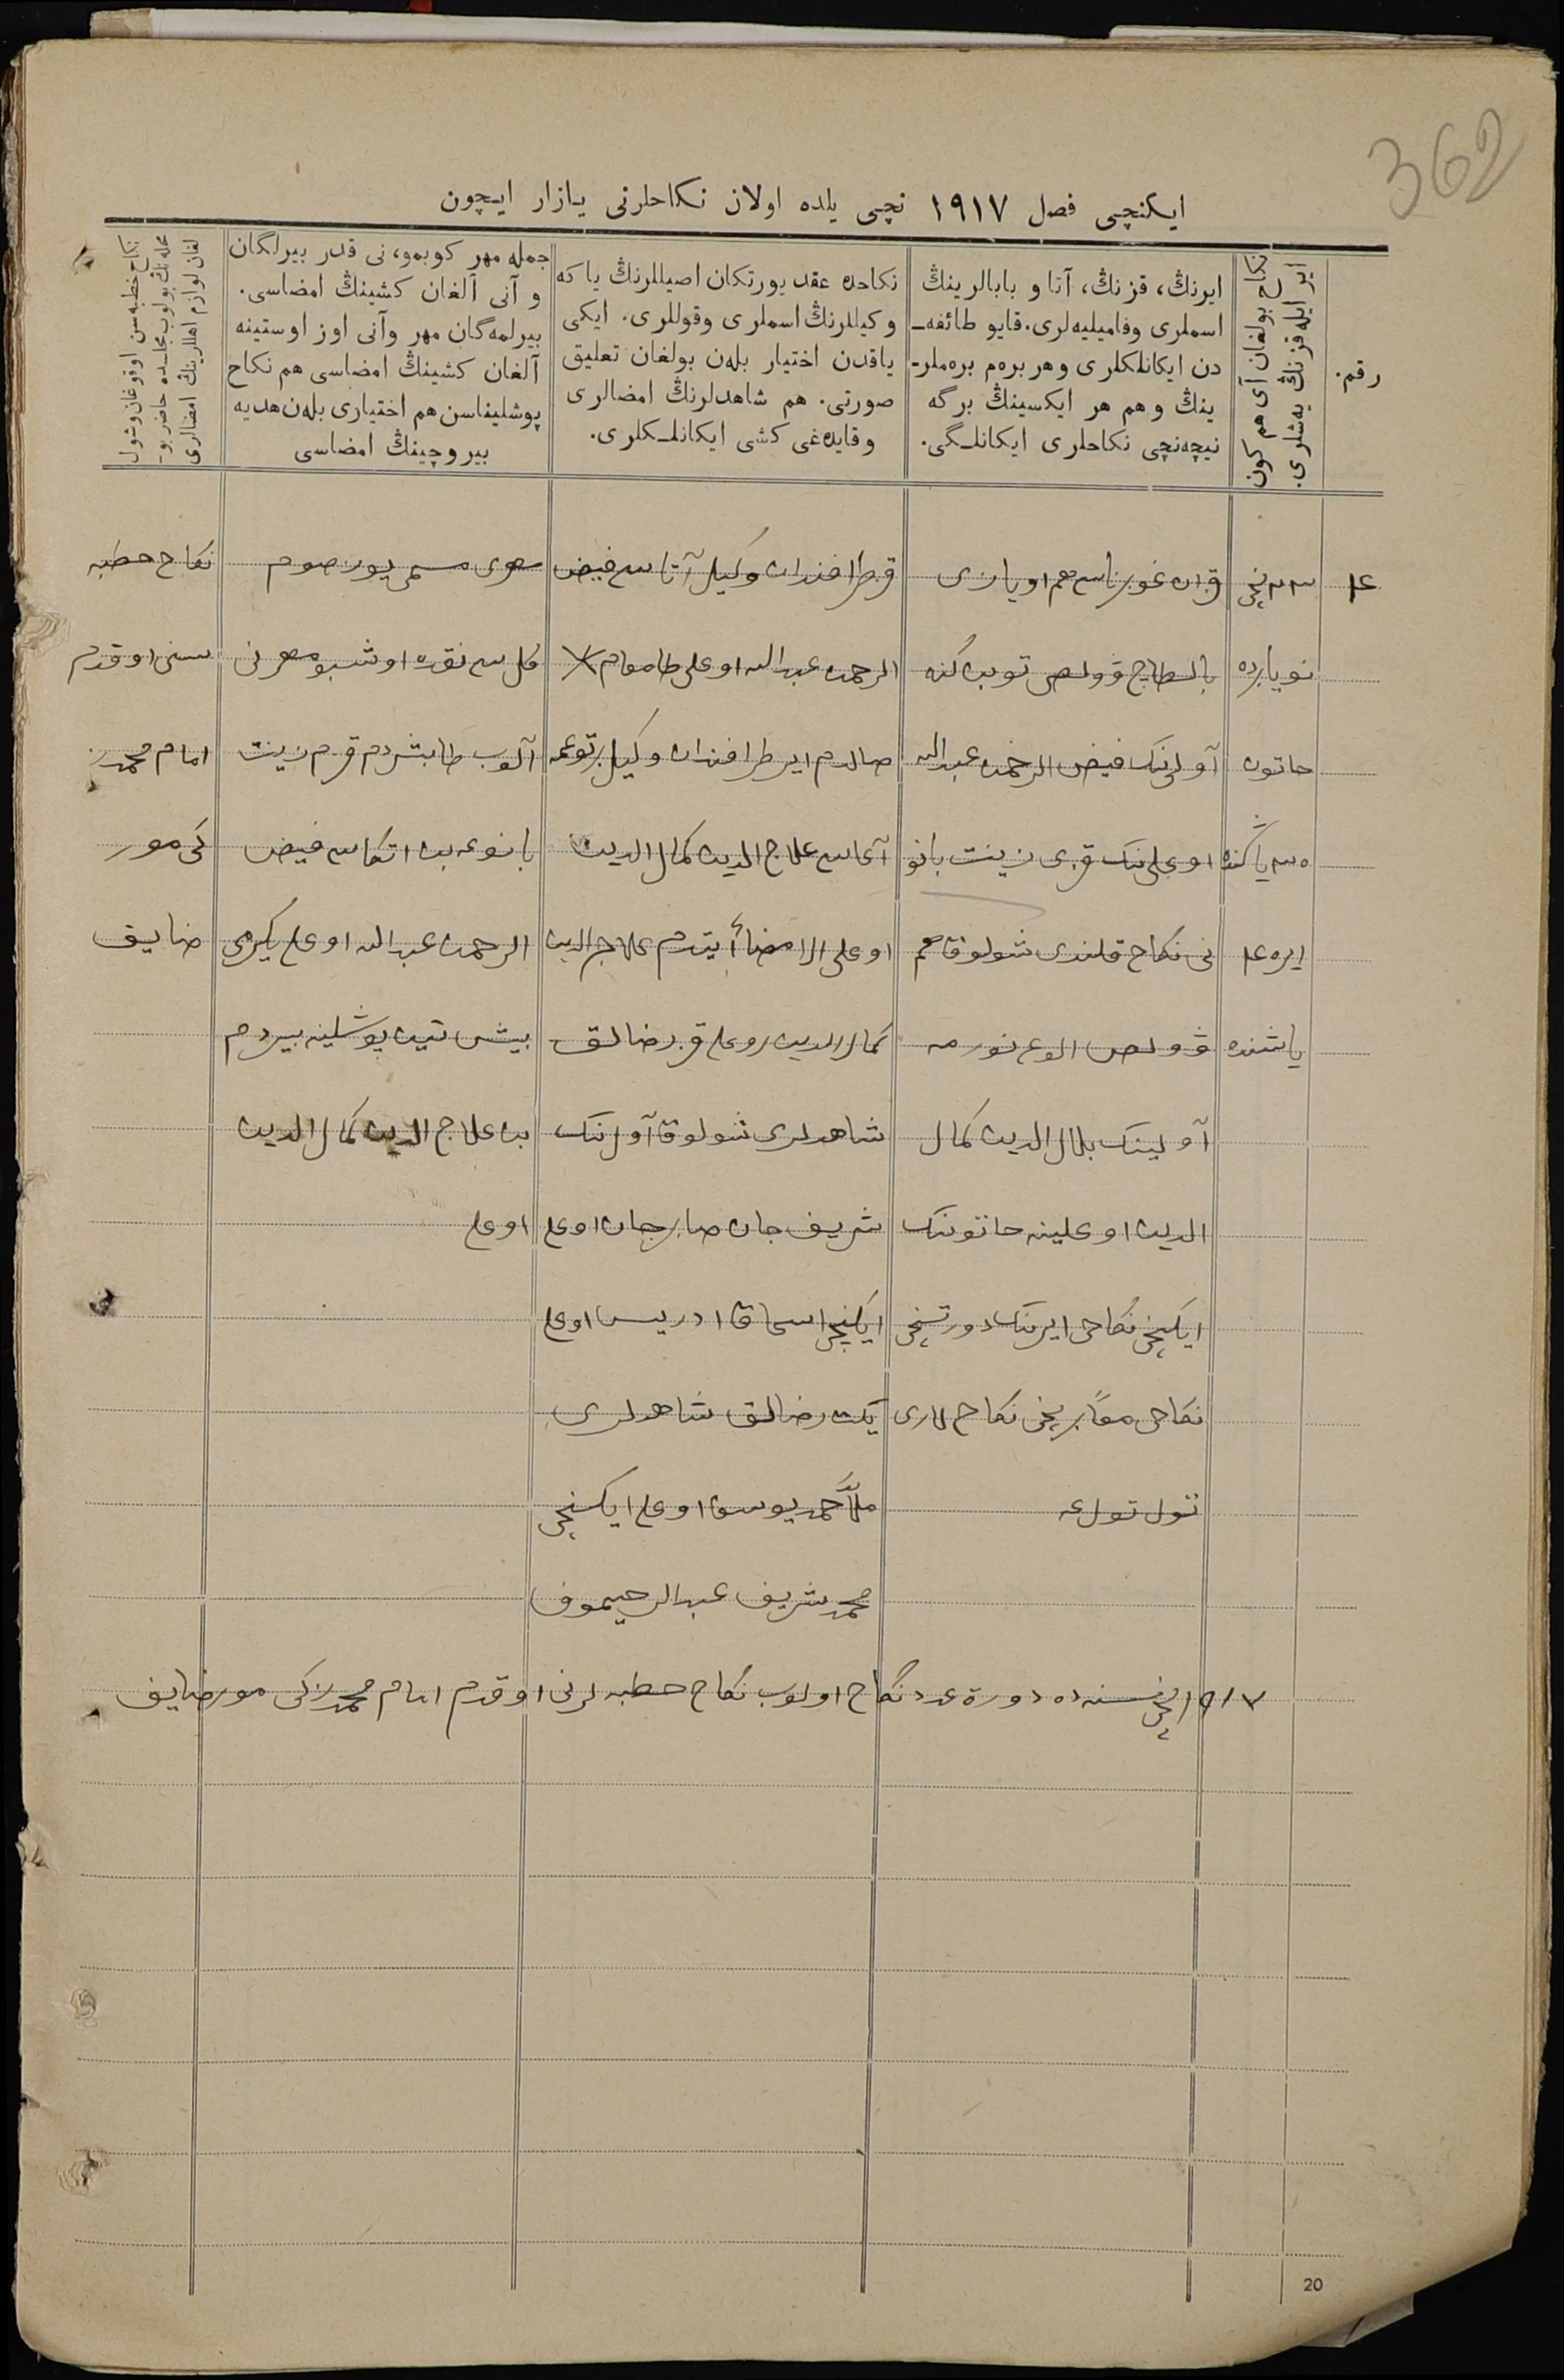 362
ایکنچی فصل ۱۹۱۷ نچی یلده اولان نکاحلرنی یازار ایچون
رقم.
نکاح بولغان آی هم کون
ایر ایله قزنڭ یه‌شلری.
ایرنڭ، قزنڭ، آتا و بابالرینڭ
اسملری وفامیلیه‌لری. قایو طائفه‌ـ
دن ایکانلکلری و هر بره‌م بره‌ملرـ
ینڭ و هم هر ایکسینڭ برگه
نیچه‌نچی نکاحلری ایکانلـگی.
نکاحده عقد یورتکان اصیللرنڭ یا که
وکیللرنڭ اسملری وقوللری. ایکی
یاقدن اختیار بله‌ن بولغان تعلیق
صورتی. هم شاهدلرنڭ امضالری
وقایده‌غی کشی ایکانلـکلری.
جمله مهر کوبمو، نی قدر بیرلگان
و آنی آلغان کشینڭ امضاسی.
بیرلمه‌گان مهر وآنی اوز اوستینه
آلغان کشینڭ امضاسی هم نکاح
پوشلیناسن هم اختیاری بله‌ن هدیه
بیروچینڭ امضاسی
نکاح خطبه سن اوقوغان وشول
محله‌نڭ بولوب مجلسده حاضر بوـ
لغان لوازم اهللرینڭ امضالری
۴
۲۳ نچی
نویابرده
خاتون
۳۵ یاشنده
ایر ۴۵
یاشنده
قزان غوبرناسی هم اویازی
بالطاچ وولصی توبن کنه
آولی‌نک فیض الرحمن عبدالله
اوغلی‌نک قزی زینت بانو
نی نکاح قلندی شولوق هم
وولص الوغ نورمه
آولینک بلال الدین کمال
الدین اوغلینه خاتوننک
ایکنچی نکاحی ایرنک دورتنچی
نکاحی معاً برنچی نکاح لاری
تول تولغه
قز طرافندان وکیل آتاسی فیض
الرحمن عبدالله اوغلی طامغام
صالدم ایر طرافندان وکیل بر توغمه
آغاسی علاج الدین کمال الدین
اوغلی امضا ایتدم علاج الدین
کمال الدین اوغلی قز رضالق
شاهدلری شولوق آولنک
شریف جان صابرجان اوغلی
ایکنچی اسحاق ادریس اوغلی
یکت رضالق شاهدلری
ملااحمد یوسف اوغلی ایکنچی
محمد شریف عبدالرحیموف
مهری مسمی یوز صوم
کل سی نقده اوشبو مهرنی
آلوب طابشردم قزم زینت
بانوغه بن اتکاسی فیض
الرحمن عبدالله اوغلی یکرمی
بیش تیین پوشلینه بیردم
بن علاج الدین کمال الدین
اوغلی
نکاح خطبه
سنی اوقدم
امام محمد ز
کی مور
ضایف
۱۹۱۷ نچی سنه‌ده دورت عدد نکاح اولوب نکاح خطبه لرنی اوقدم امام محمد زکی مورضایف
20